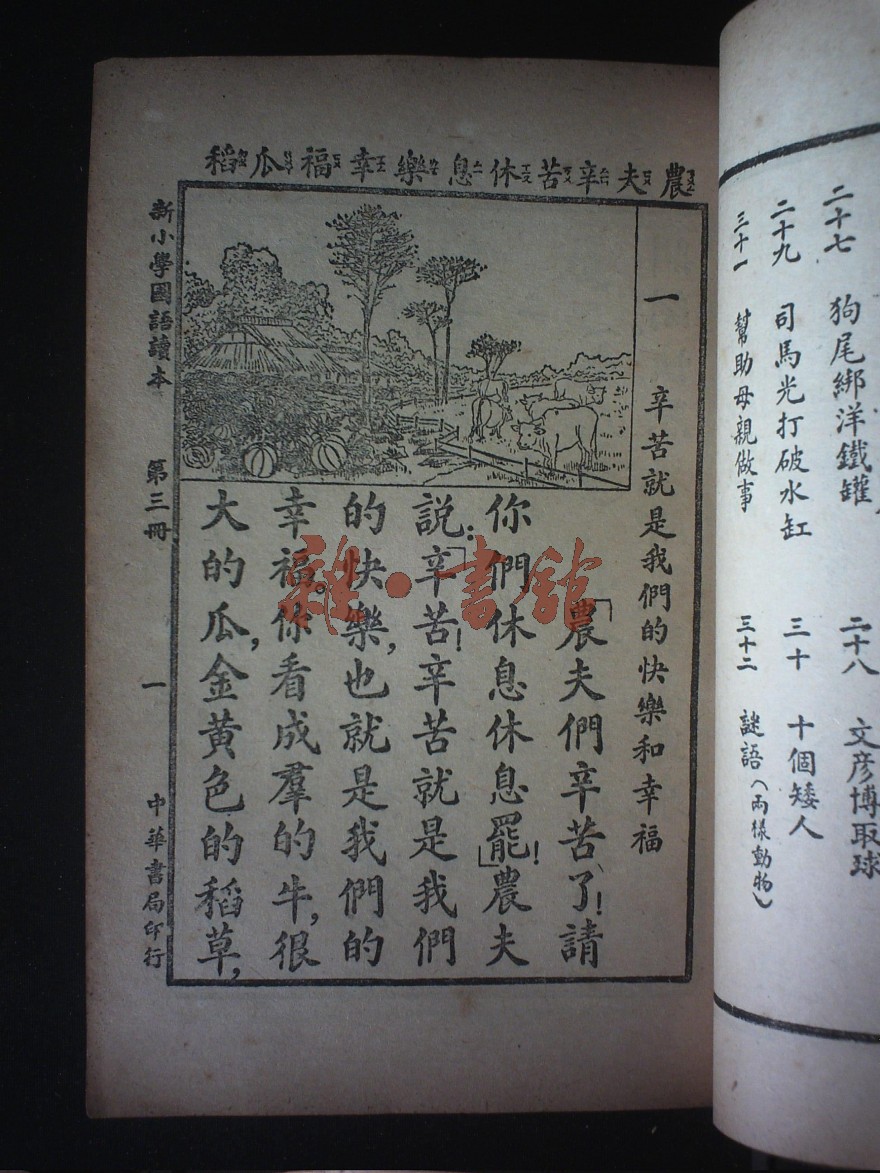 二十七 狗尾綁洋鐵罐
二十八 文彦博取球
二十九 司馬光打破水缸
三十 十個矮人
三十一 幫助母親做事
三十二 謎語(兩樣動物)
農夫辛苦休息樂幸福瓜稻
一 辛苦就是我們的快樂和幸福
「農夫們辛苦了!請
你們休息休息罷!」農夫
說:「辛苦!辛苦就是我們
的快樂,也就是我們的
幸福。你看成羣的牛,很
大的瓜,金黃色的稻草,
新小學國語讀本 第三冊 一 中華書局印行
雜·書館